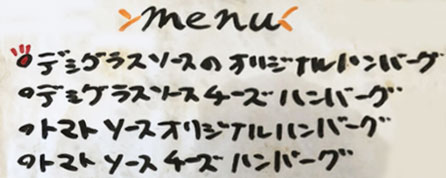 menu
デミグラスソースのオリジナルハンバーグ
デミグラスソースチーズハンバーグ
トマトソースオリジナルハンバーグ
トマトソースチーズハンバーグ